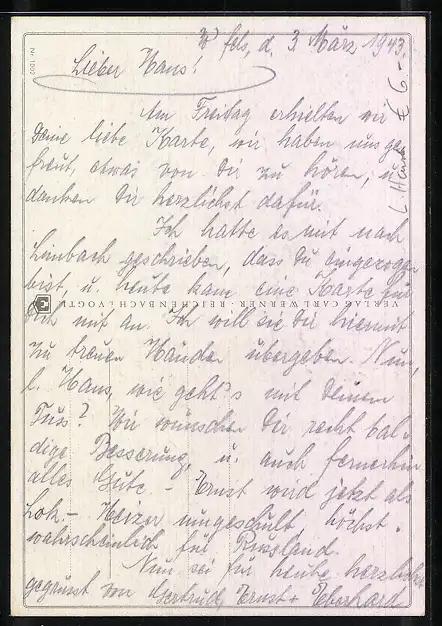 W fels, d. 3 März 1943.
Lieber Hans!
Am Freitag erhielten wir
Deine liebe Karte, wir haben uns ge
freut, etwas von Dir zu hören, u.
danken Dir herzlichst dafür.
Ich hatte es mit nach
Limbach geschrieben, dass Du eingezogen
bist, u. heute kam eine Karte für
Dich mit an. Ich will sie Dir hiermit
zu treuen Händen übergeben. Nun,
l. Hans, wie geht's mit Deinem
Fuss? Wir wünschen Dir recht bal-
dige Besserung, u. auch fernerhin
alles Gute. – Ernst wird jetzt als
Lok.- Heizer umgeschult, höchst-
wahrscheinlich für Russland.
Nun sei für heute herzlichst
gegrüsst von Gertrud, Ernst + Eberhard
€ 6.-
Nr. 1002
VERLAG CARL WERNER · REICHENBACH I. VOGTL.